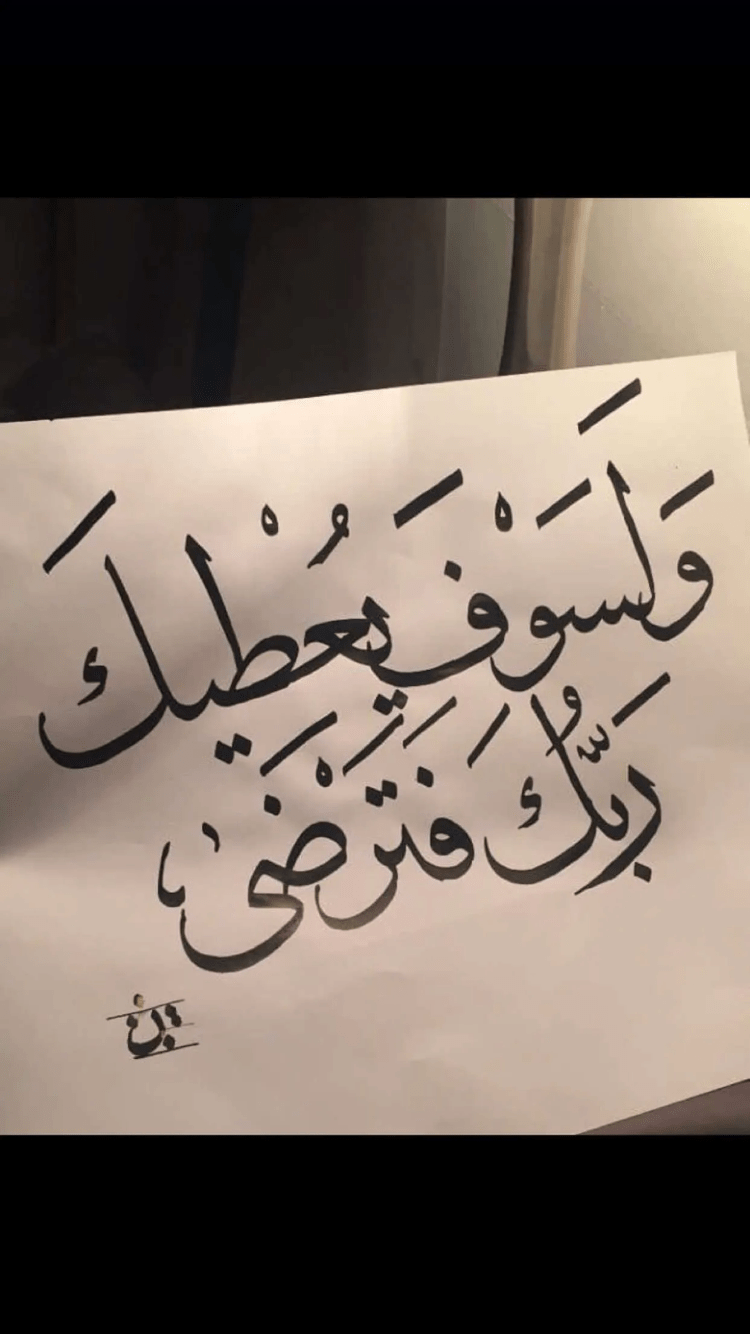 وَلَسَوْفَ يُعْطِيكَ
رَبُّكَ فَتَرْضَىٰ